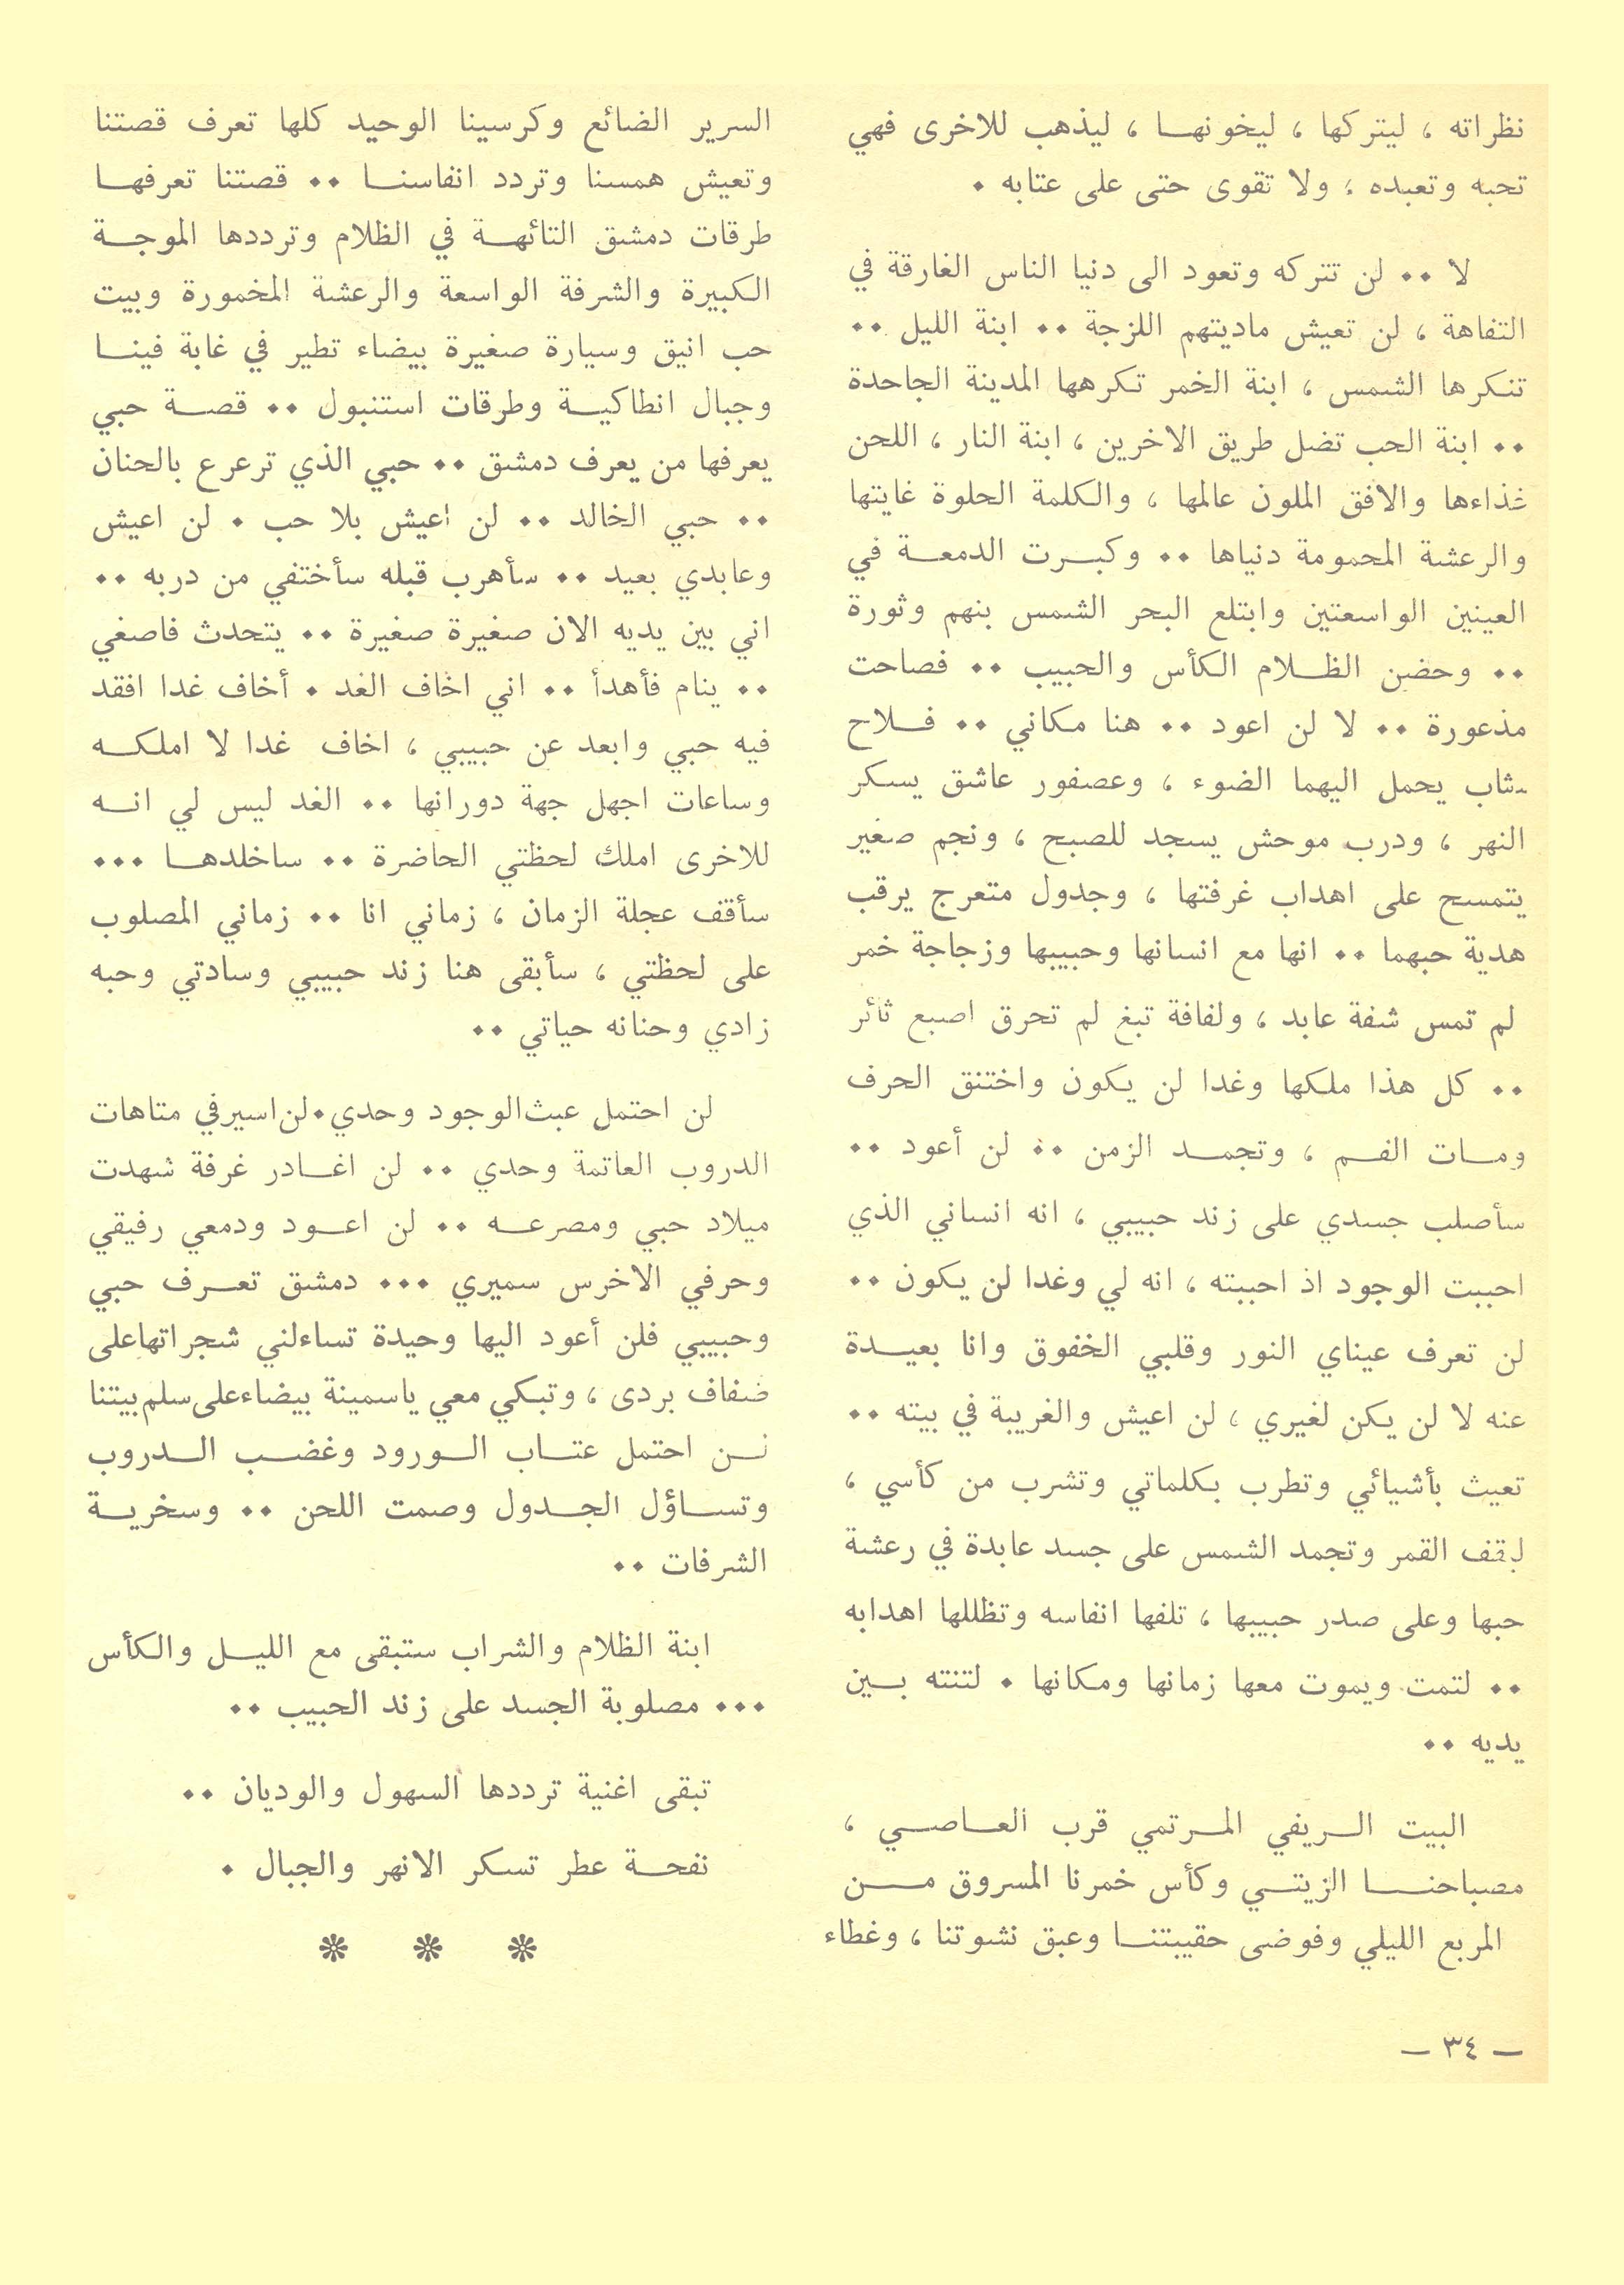 نظراته ، ليتركها ، ليخونهــا ، ليذهب للاخرى فهي
تحبه وتعبده ، ولا تقوى حتى على عتابه ٠
لا ٠٠ لن تتركه وتعود الى دنيا الناس الغارقة في
التفاهة ، لن تعيش ماديتهم اللزجة ٠٠ ابنة الليل ٠٠
تنكرها الشمس ، ابنة الخمر تكرهها المدينة الجاحدة
٠٠ ابنة الحب تضل طريق الاخرين ، ابنة النار ، اللحن
غذاءها والافق الملون عالمها ، والكلمة الحلوة غايتها
والرعشة المحمومة دنياها ٠٠ وكبــرت الدمعــة في
العينين الواسعتين وابتلع البحر الشمس بنهم وثورة
٠٠ وحضن الظــلام الكأس والحبيب ٠٠ فصاحت
مذعورة ٠٠ لا لن اعود ٠٠ هنا مكاني ٠٠ فــلاح
شاب يحمل اليهما الضوء ، وعصفور عاشق يسكر
النهر ، ودرب موحش يسجد للصبح ، ونجم صغير
يتمسح على اهداب غرفتها ، وجدول متعرج يرقب
هدية حبهما ٠٠ انها مع انسانها وحبيبها وزجاجة خمر
لم تمس شفة عابد ، ولفافة تبغ لم تحرق اصبع ثائر
٠٠ كل هذا ملكها وغدا لن يكون واختنق الحرف
ومــات الفــم ، وتجمــد الزمن ٠٠ لن أعود ٠٠
سأصلب جسدي على زند حبيبي ، انه انساني الذي
احببت الوجود اذ احببته ، انه لي وغدا لن يكون ٠٠
لن تعرف عيناي النور وقلبي الخفوق وانا بعيــدة
عنه لا لن يكن لغيري ، لن اعيش والغريبة في بيته ٠٠
تعيث بأشيائي وتطرب بكلماتي وتشرب من كأسي ،
ليقف القمر وتجمد الشمس على جسد عابدة في رعشة
حبها وعلى صدر حبيبها ، تلفها انفاسه وتظللها اهدابه
٠٠ لتمت ويموت معها زمانها ومكانها ٠ لتنته بــين
يديه ٠٠
البيت الــريفي المــرتمي قرب العــاصــي ،
مصباحنـــا الزيتــي وكأس خمرنا المسروق مـــن
المربع الليلي وفوضى حقيبتنــا وعبق نشوتنا ، وغطاء
السرير الضائع وكرسينا الوحيد كلها تعرف قصتنا
وتعيش همسنا وتردد انفاسنــا ٠٠ قصتنا تعرفهــا
طرقات دمشق التائهــة في الظلام وترددها الموجــة
الكبيرة والشرفة الواسعة والرعشة المخمورة وبيت
حب انيق وسيارة صغيرة بيضاء تطير في غابة فينــا
وجبال انطاكيــة وطرقات استنبول ٠٠ قصــة حبي
يعرفها من يعرف دمشق ٠٠ حبي الذي ترعرع بالحنان
٠٠ حبي الخالد ٠٠ لن اعيش بلا حب ٠ لن اعيش
وعابدي بعيد ٠٠ سأهرب قبله سأختفي من دربه ٠٠
اني بين يديه الان صغيرة صغيرة ٠٠ يتحدث فاصغي
٠٠ ينام فأهدأ ٠٠ اني اخاف الغد ٠ أخاف غدا افقد
فيه حبي وابعد عن حبيبي ، اخاف غدا لا املكــه
وساعات اجهل جهة دورانها ٠٠ الغد ليس لي انــه
للاخرى املك لحظتي الحاضرة ٠٠ ساخلدهــا ٠٠٠
سأقف عجلة الزمان ، زماني انا ٠٠ زماني المصلوب
على لحظتي ، سأبقى هنا زند حبيبي وسادتي وحبه
زادي وحنانه حياتي ٠٠
لن احتمل عبث الوجود وحدي ٠ لن اسير في متاهات
الدروب العاتمة وحدي ٠٠ لن اغــادر غرفة شهدت
ميلاد حبي ومصرعــه ٠٠ لن اعــود ودمعي رفيقي
وحرفي الاخرس سميري ٠٠٠ دمشق تعــرف حبي
وحبيبي فلن أعود اليها وحيدة تساءلني شجراتها على
ضفاف بردى ، وتبكي معي ياسمينة بيضاء على سلم بيتنا
لــن احتمل عتــاب الــورود وغضــب الــدروب
وتســاؤل الجــدول وصمت اللحن ٠٠ وسخريــة
الشرفات ٠٠
ابنة الظلام والشراب ستبقى مع الليــل والكأس
٠٠٠ مصلوبة الجسد على زند الحبيب ٠٠
تبقى اغنية ترددها السهول والوديان ٠٠
نفحــة عطر تسكر الانهر والجبال ٠
❋ ❋ ❋
— ٣٤ —